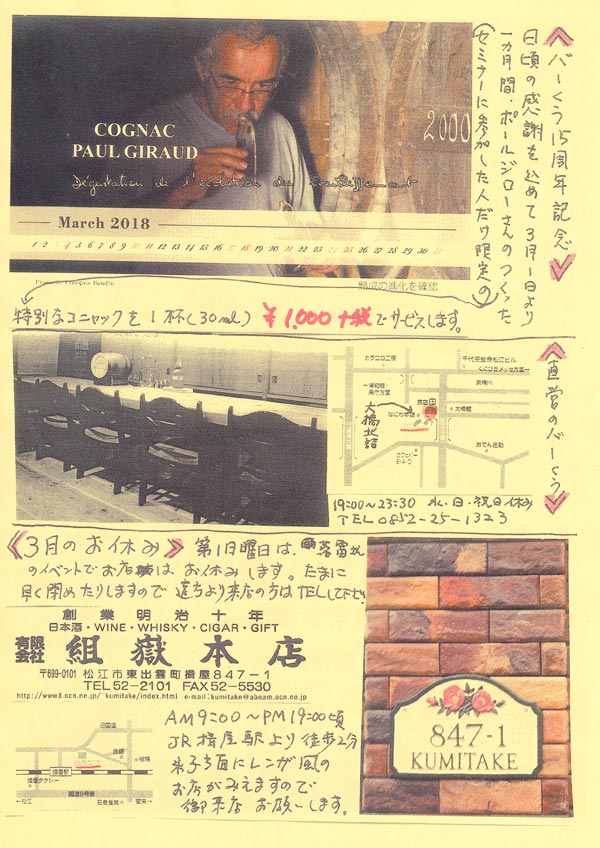 《バーくう15周年記念》
日頃の感謝を込めて3月1日より
一カ月間・ポールジローさんのつくった
(セミナーに参加した人だけ限定の)
COGNAC
PAUL GIRAUD
2000
Dégustation de l'évolution du vieillissement
March 2018
1 2 3 4 5 6 7 8 9 10 11 12 13 14 15 16 17 18 19 20 21 22 23 24 25 26 27 28 29 30 31
熟成の進化を確認
特別なコニャックを1杯(30ml) ¥1,000+税でサービスします。
《直営のバーくう》
カラコロ工房
千代田生命松江ビル
くにびきメッセ方面→
京橋川
一畑電鉄・
県庁方面
大橋北詰
なにわ本店
大橋館
カフェバー
E・A・D
おでん庄助
19:00~23:30 水・日・祝日休み
TEL 0852-25-1323
《3月のお休み》 第1日曜日は、
のイベントでお店はお休みします。たまに
早く閉めたりしますので 遠方より来店の方はTELして下さい
創業明治十年
日本酒・WINE・WHISKY・CIGAR・GIFT
有限会社 組嶽本店
〒699-0101 松江市東出雲町揖屋847-1
TEL52-2101 FAX52-5530
http://www8.ocn.ne.jp/~kumitake/index.html e-mail:kumitake@abeam.ocn.ne.jp
旧国道
金銀
役場
揖屋駅
揖屋タクシー
国道9号線
←松江
石倉産業
安来→
AM9:00~PM19:00頃
JR揖屋駅より徒歩2分
米子方面にレンガ風の
お店がみえますので
御来店 お願いします。
847-1
KUMITAKE